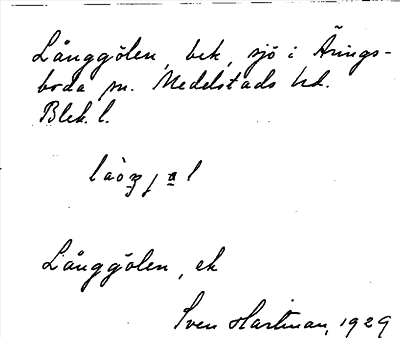 Långgölen, bek, sjö i Årings-
boda sn. Medelstads hd.
Blek. l.
Långgölen, ek
Sven Hartman, 1929